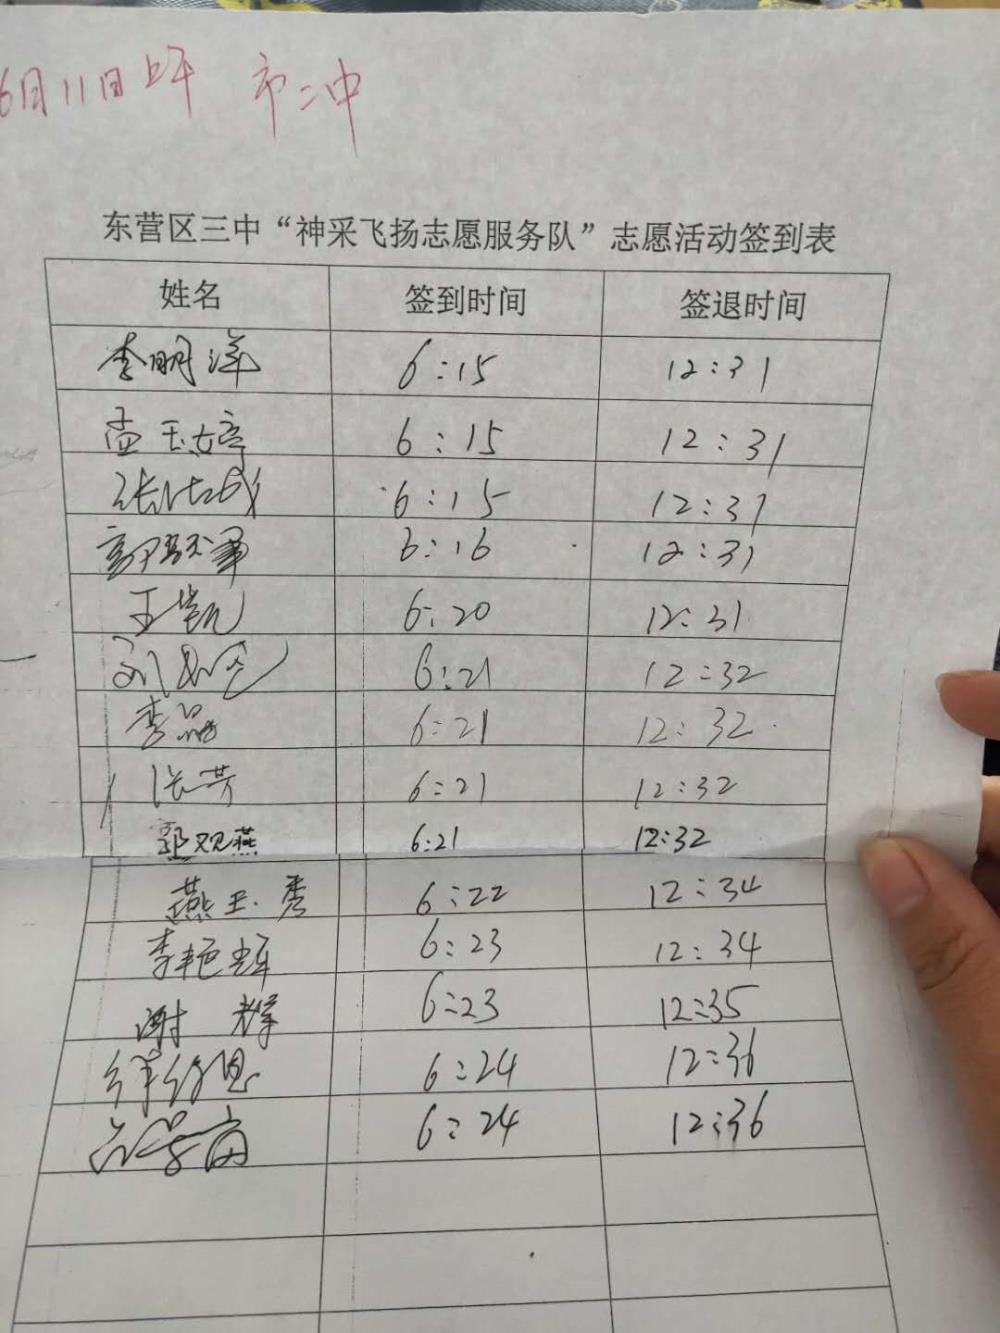 6月11日上午 市二中
东营区三中“神采飞扬志愿服务队”志愿活动签到表
姓名 签到时间 签退时间
李明洋 6:15 12:31
孟玉婷 6:15 12:31
6:15 12:31
6:16 12:31
王凯 6:20 12:31
6:21 12:32
李晶 6:21 12:32
张芳 6:21 12:32
郭观燕 6:21 12:32
燕玉秀 6:22 12:34
李艳辉 6:23 12:34
谢辉 6:23 12:35
6:24 12:36
6:24 12:36